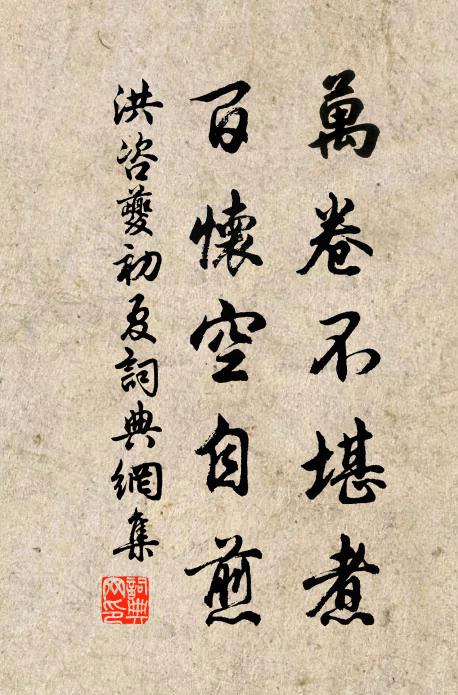 萬卷不堪煮
百懷空自煎
洪咨夔初夏詞典網集
詞典網印